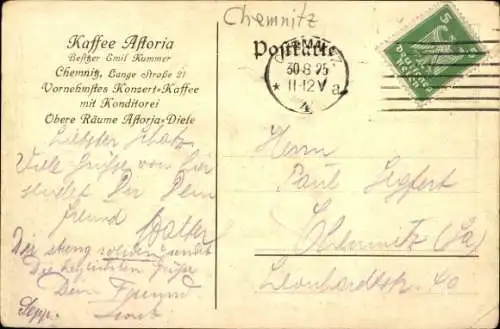 Chemnitz
Kaffee Astoria
Besitzer Emil Kummer
Chemnitz, Lange Straße 21
Vornehmstes Konzert-Kaffee
mit Konditorei
Obere Räume Astoria-Diele
Postkarte
CHEMNITZ
30.8.25
* 11-12 V a
4
5 5
Deutsches
Reich
Liebster Schatz
Viele Grüße von hier
sendet Dir Dein
Freund Walter
Die
Dein Freund
Herrn
Paul Seyfert
Chemnitz (Sa)
Leonhardtstr. 40